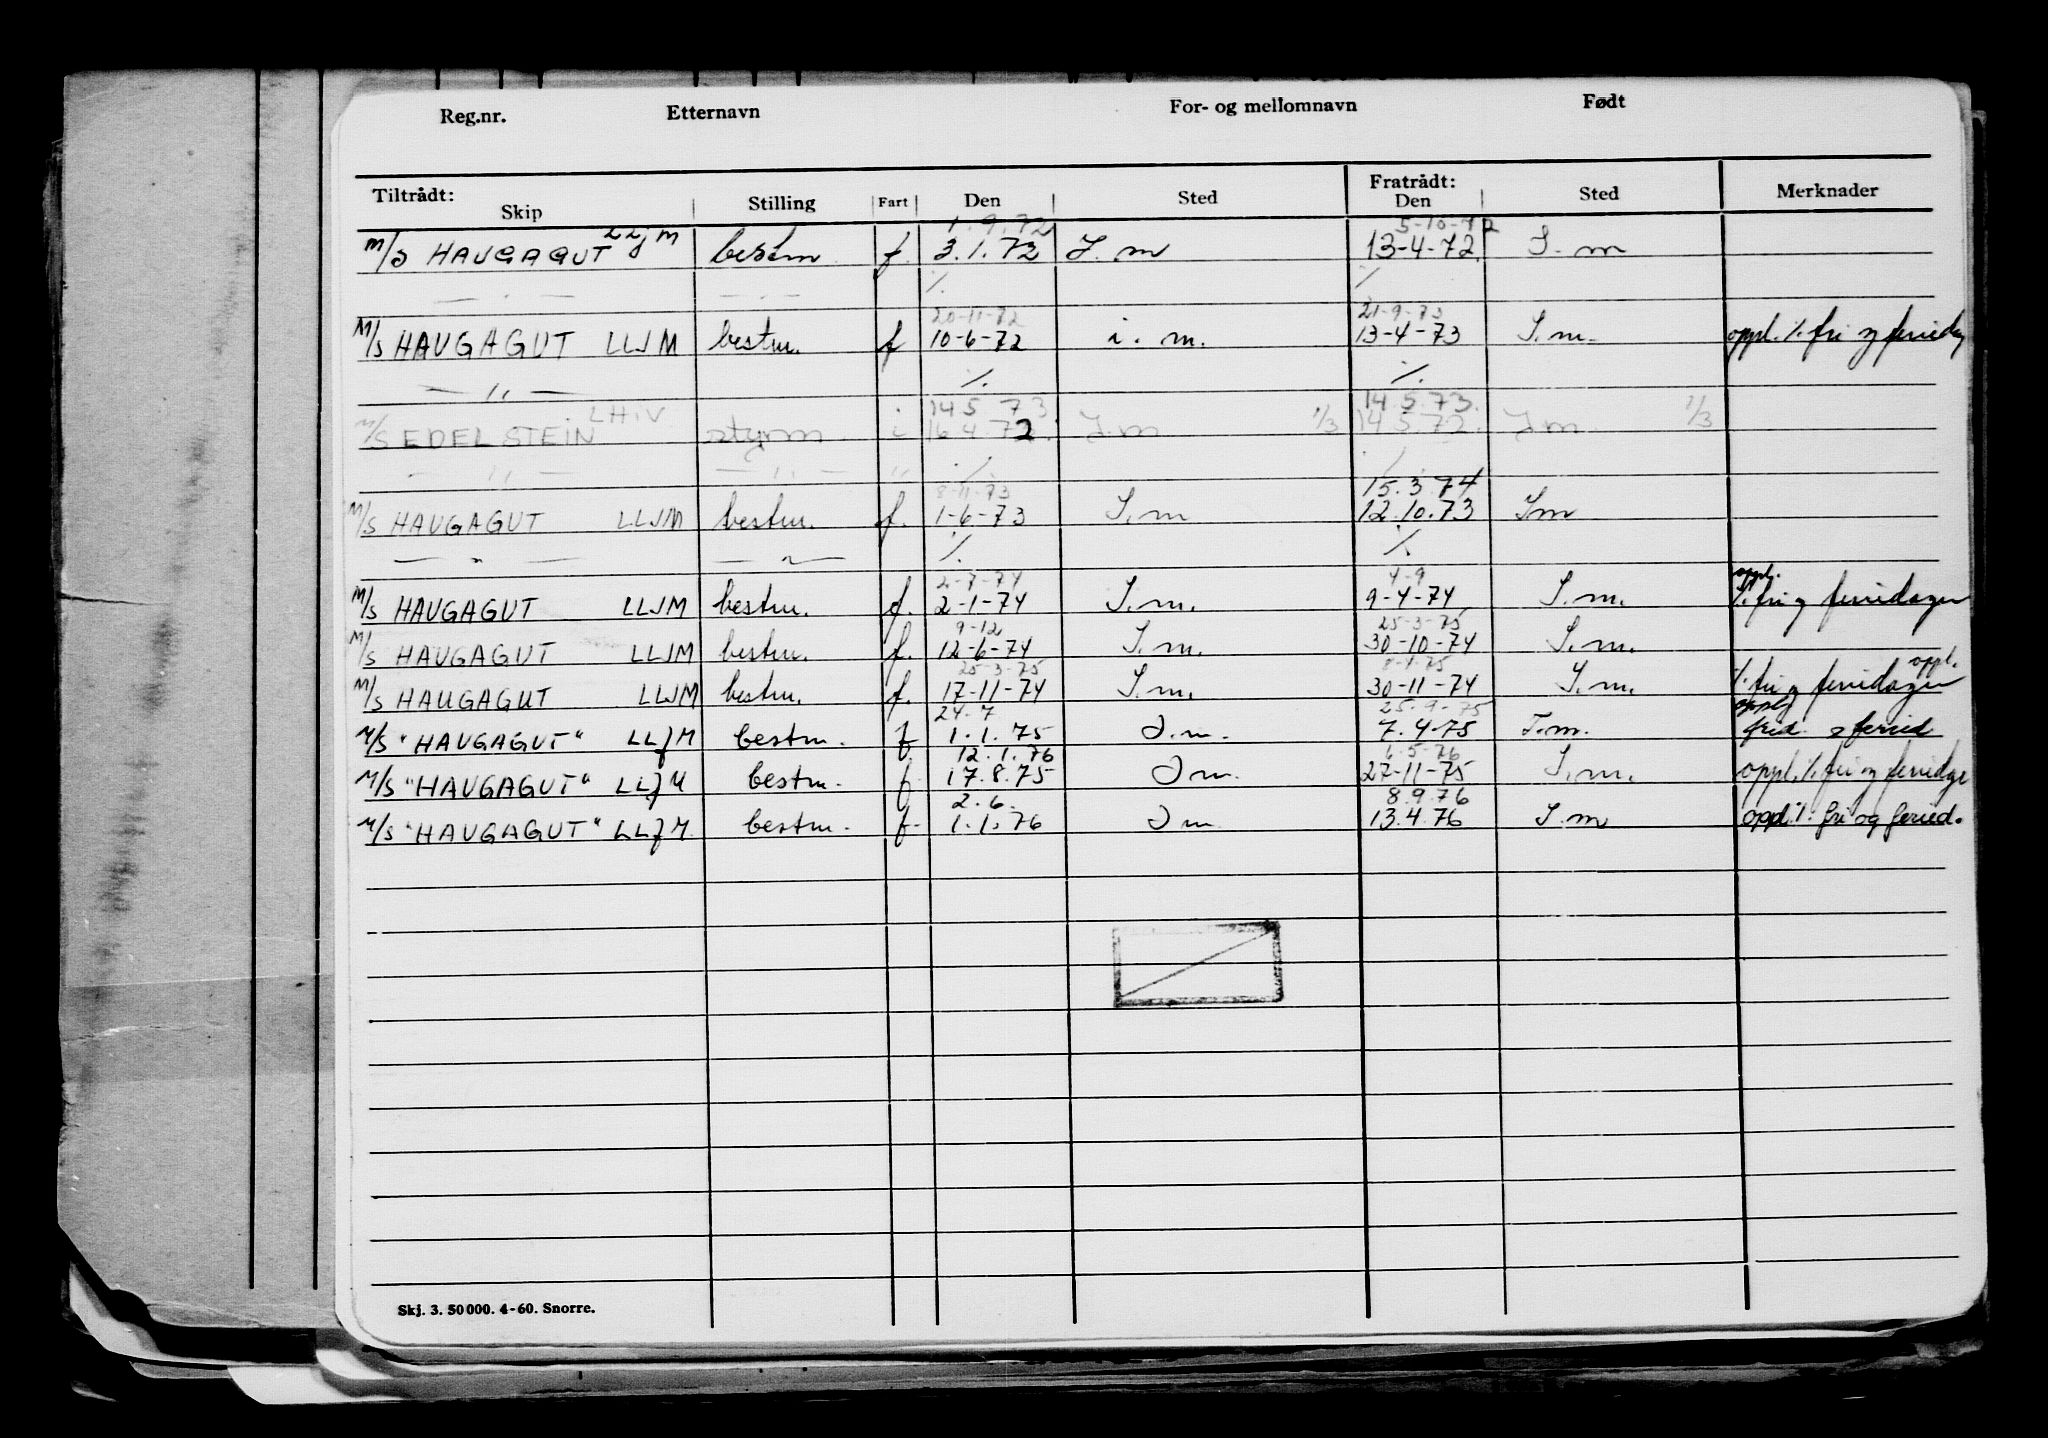 Reg.nr. Etternavn For- og mellomnavn Født
Tiltrådt: Skip Stilling Fart Den Sted Fratrådt: Den Sted Merknader
1.9.72 5-10-72
M/S HAUGAGUT LLJM bestm f. 3.1.72 I.m 13-4-72 I.m
— " — — " — %. %
20-11-72 21-9-73
M/S HAUGAGUT LLJM bestm. f 10-6-72 i.m. 13-4-73 I.m. oppl. %. fri og feriedag
— " — %. %.
LHIV i 14 5 73 14.5.73.
M/S EDELSTEIN styrm i 16.4.72. I.m 1/3 14 5 72. I.m. 1/3
— " — — " — " %. %
8-11-73 15.3.74
M/S HAUGAGUT LLJM bestm. f. 1-6-73 I.m 12.10.73 Im
— " — — " — %. %.
2-7-74 4-9 oppl.
M/S HAUGAGUT LLJM bestm. f. 2-1-74 I.m. 9-4-74 I.m. %. fri og feriedager
9-12 25-3-75
M/S HAUGAGUT LLJM bestm. f. 12-6-74 I.m. 30-10-74 I.m.
25-3-75 8-4-75 oppl.
M/S HAUGAGUT LLJM bestm. f. 17-11-74 I.m. 30-11-74 I.m. %. fri og feriedager
24.7 25-9-75 oppl.
M/S "HAUGAGUT" LLJM bestm. f 1.1.75 I.m. 7.4-75 I.m. frid. og feried
12.1.76 6.5-76
M/S "HAUGAGUT" LLJM bestm. f 17.8.75 I m. 27-11-75 I.m. oppl. %. fri og feriedge
2.6. 8.9.76
M/S "HAUGAGUT" LLJM. bestm. f. 1.1.76 I m 13.4.76 I.m oppl. %. fri og feried.
Skj. 3. 50 000. 4-60. Snorre.